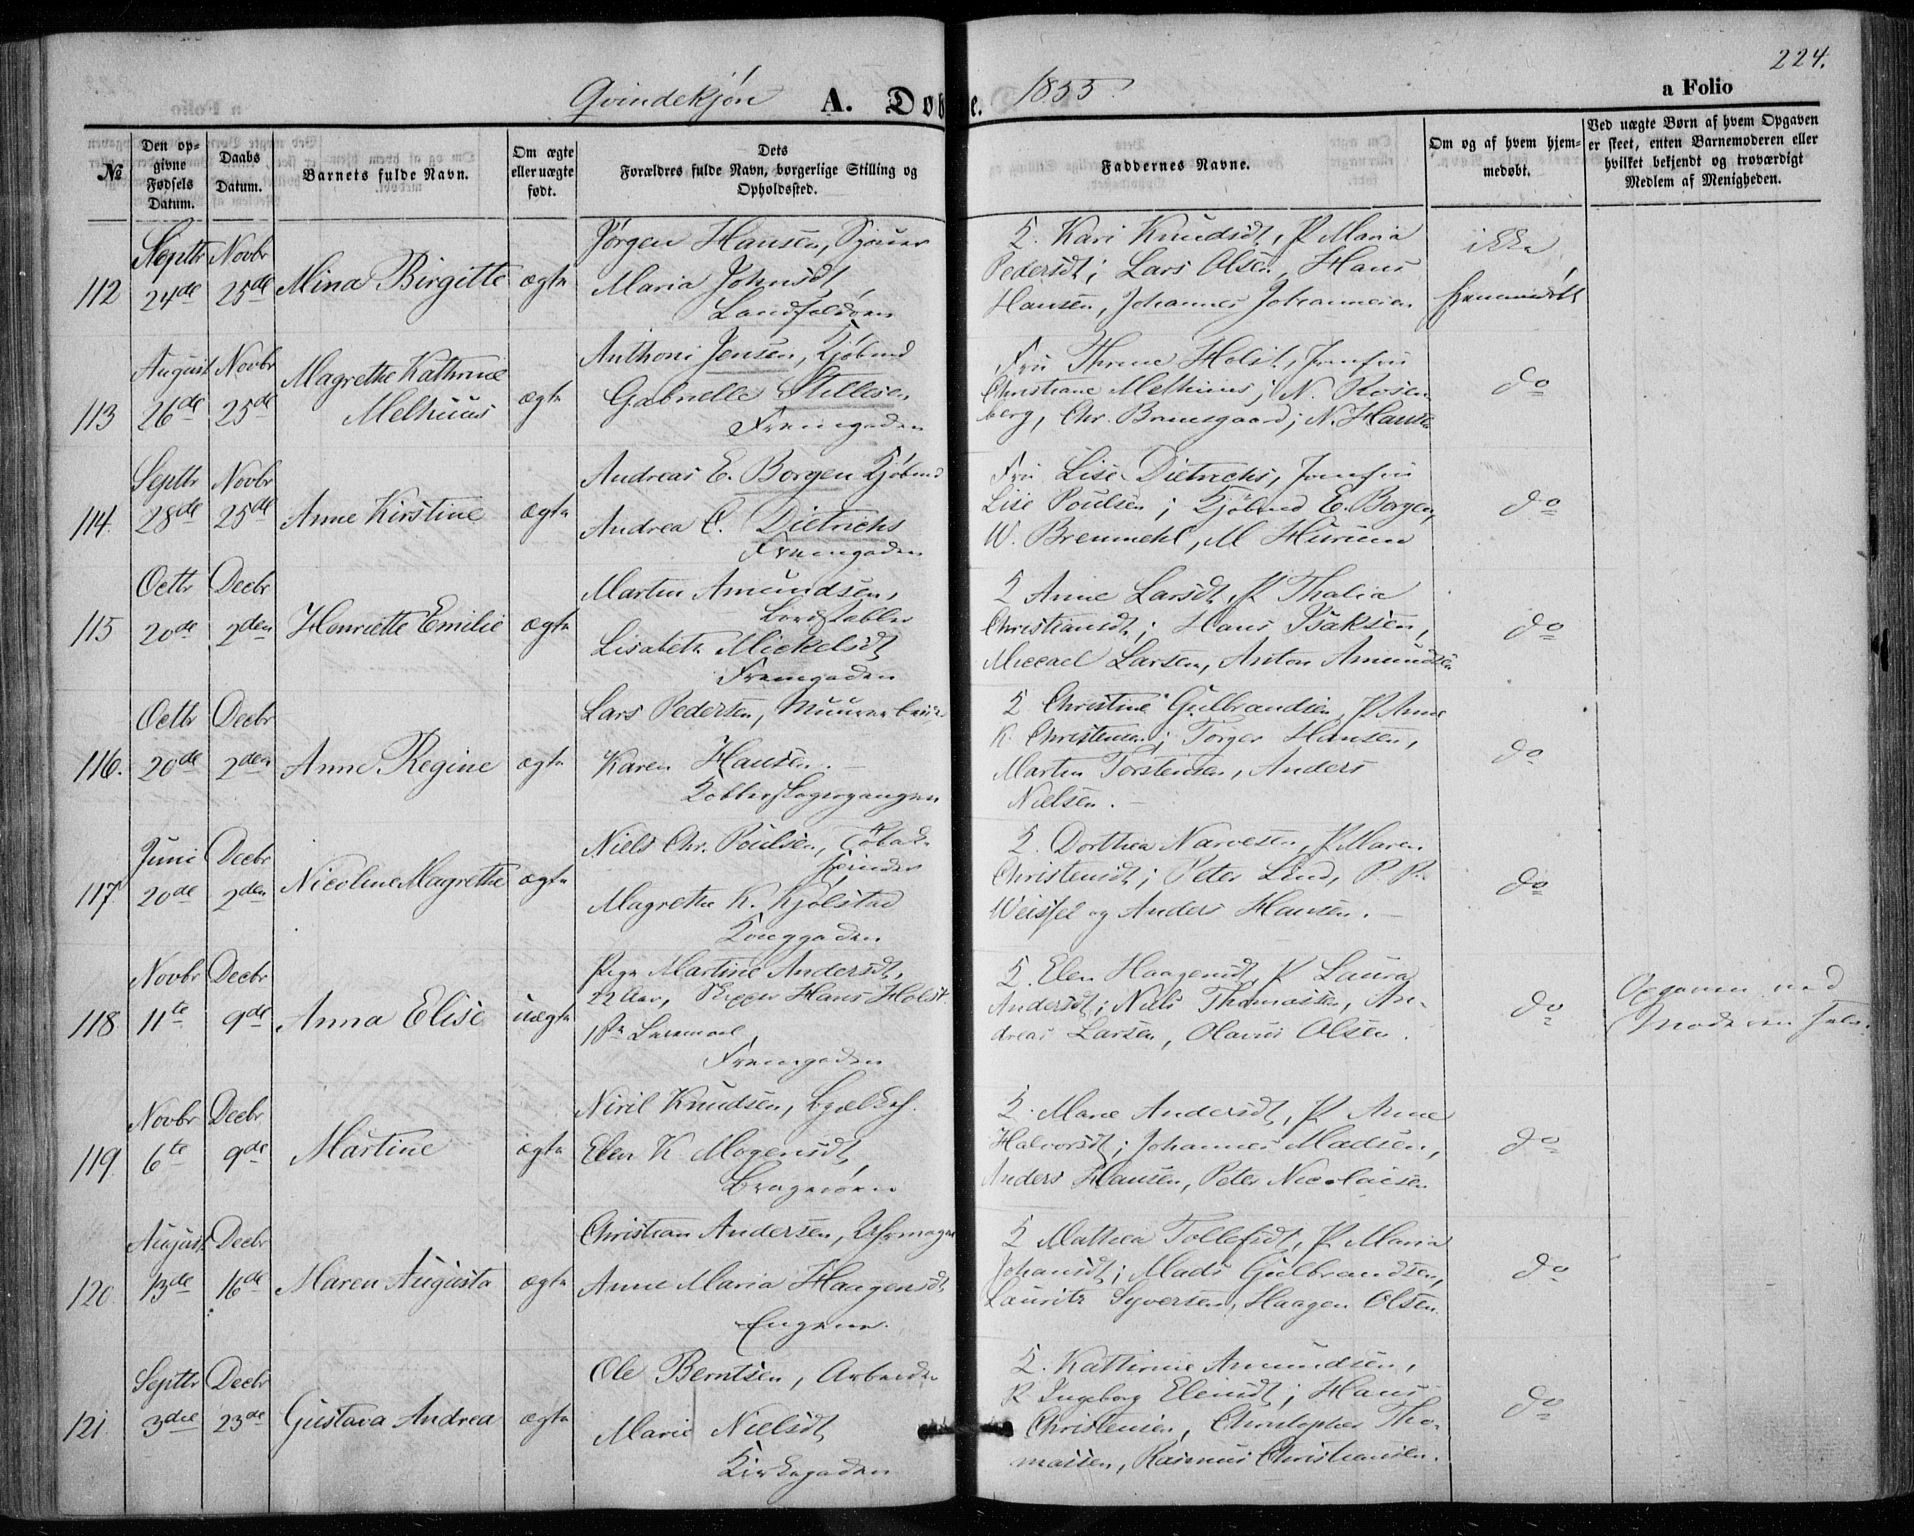 224.
Qvindekjøn A. Døbte. 1855. a Folio
№
Den opgivne Fødsels Datum.
Daabs Datum.
Barnets fulde Navn.
Om ægte eller uægte født.
Dets Forældres fulde Navn, borgerlige Stilling og Opholdssted.
Faddernes Navne.
Om og af hvem hjemmedøbt.
Ved uægte Børn af hvem Opgaven er skeet, enten Barnemoderen eller hvilket bekjendt og troværdigt Medlem af Menigheden.
112 Septbr 24de Novbr 25de Mina Birgitte ægte
Jørgen Hansen, Sjouer
Maria Johnsdt,
Landfaldøen
K. Kari Knudsdt, P Maria
Pedersdt; Lars Olsen, Hans
Hansen, Johannes Johannesen
ikke
hjemmedøbt
113 August 26de Novbr 25de Magrethe Kathrine
Melhuus ægte
Anthoni Jensen, Kjøbmd
Gabrielle Stillesen,
Fremgaden
Fru Thrine Holst, Jomfru
Christiane Melhuus; N. Rosen
berg, Chr. Bramsgaard; N. Hansen
do
114. Septbr 28de Novbr 25de Anne Kirstine ægte
Andreas E. Borgen Kjøbmd
Andrea C. Dietrichs
Fremgaden
Fru Lise Dietrichs, Jomfru
Lise Poulsen; Kjøbmd E. Borgen,
W. Bremmehl, M Huruum
do
115 Octbr 20de Decbr 2den Henriette Emilie ægte
Martin Amundsen,
Bordstabler
Lisabeth Mickelsdt
Fremgaden
K Anne Larsdt, P Thalia
Christiansdt; Hans Isaksen,
Miccael Larsen, Anton Amundsen
do
116. Octbr 20de Decbr 2den Anne Regine ægte
Lars Pedersen, Muurarbeid
Karen Hansen.
Kobberslagergangen
K Christine Gulbrandsen, P Anne
K. Christensen; Torger Hansen,
Martin Torstensen, Anders
Nielsen.
do
117 Juni 20de Decbr 2den Nicoline Magrethe ægte
Niels Chr. Poulsen, Tobak
spinder
Magrethe K. Kjølstad
Konggaden
K. Dorthea Narvesen, P. Maren
Christensdt; Peter Lind, P. P.
Weissel og Anders Hansen.
do
118 Novbr 11te Decbr 9de Anna Elise uægte
Pige Martine Andersdt,
22 Aar, Skipper Hans Holst
1ste Leiermaal,
Fremgaden
K. Elen Haagensdt, P Laura
Andersdt; Niels Thomassen, An-
dreas Larsen, Olaves Olsen.
do
Opgaven ved
Moderen selv.
119. Novbr 6te Decbr 9de Martine ægte
Niril Knudsen,
Elen K Mogensdt,
Bragerøen
K. Marie Andersdt, P. Anne
Halvorsdt; Johannes Madsen,
Anders Hansen, Peter Nicolaisen
do
120. August 13de Decbr 16de Maren Augusta ægte
Christian Andersen, Uhrmager
Anne Maria Haagensdt
Engene.
K Mathea Tollefsdt, P Maria
Johansdt; Mads Gulbrandsen,
Lauritz Syversen, Haagen Olsen.
do
121. Septbr 3die Decbr 23de Gustava Andrea ægte
Ole Berntsen, Arbeider
Marie Nielsdt,
Kirkegaden
K. Kathrine Amundsen,
P. Ingeborg Eleinsdt; Hans
Christensen, Christopher Tho-
massen, Rasmus Christiansen.
do